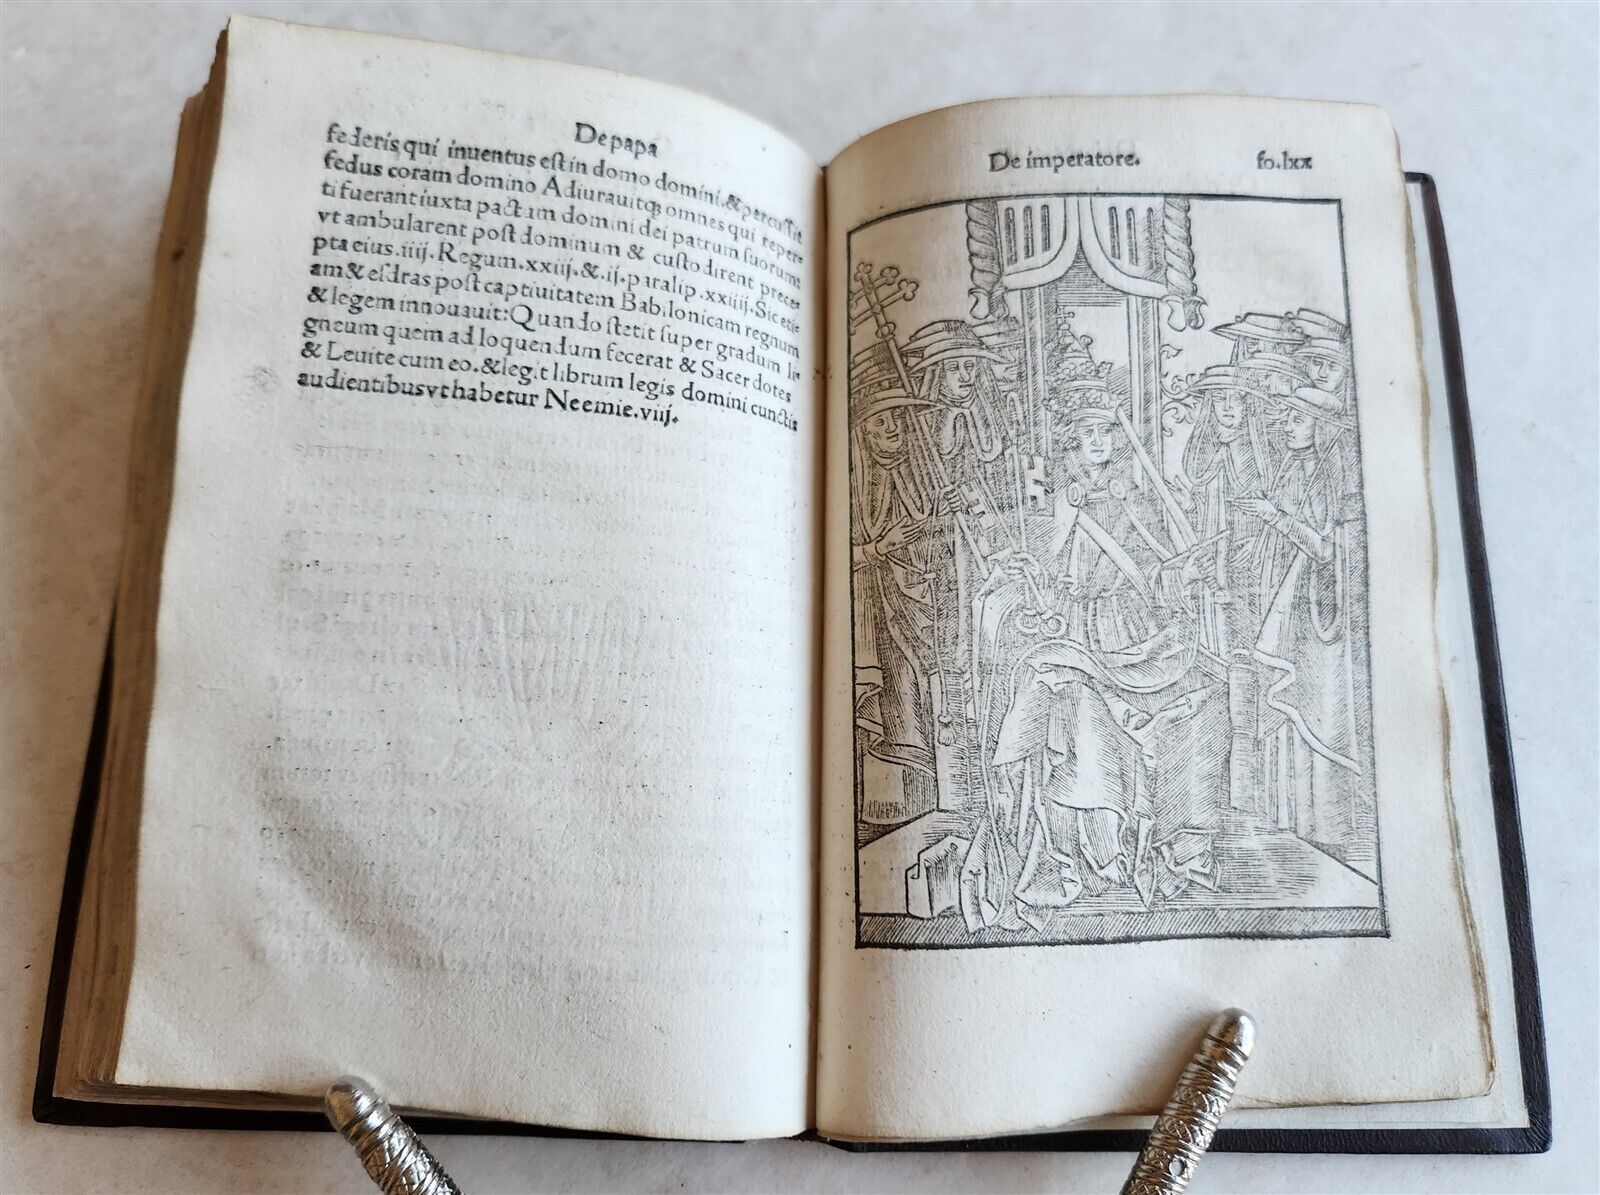 De papa
federis qui inuentus est in domo domini. & percussit
fedus coram domino Adiurauitqꝫ omnes qui reper
ti fuerant iuxta pactum domini dei patrum suorum:
vt ambularent post dominum & custodirent prece
pta eius. iiij. Regum. xxiij. & .ij. paralip. xxiiij. Sic eti
am & esdras post captiuitatem Babilonicam regnum
& legem innouauit: Quando stetit super gradum li
gneum quem ad loquendum fecerat & Sacerdotes
& Leuite cum eo. & legit librum legis domini cunctis
audientibus vt habetur Neemie. viij.
De imperatore. fo. lxx